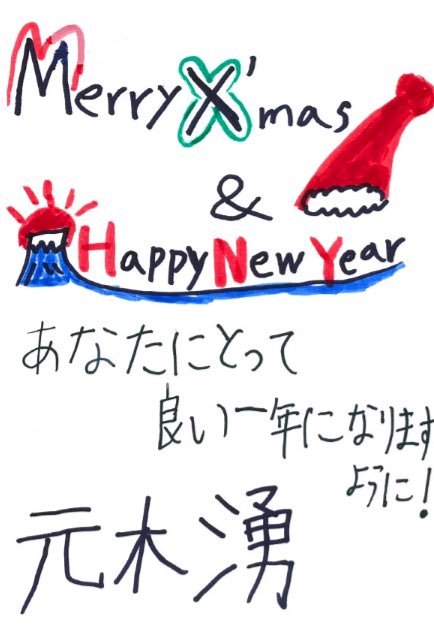 Merry X'mas
&
Happy New Year
あなたにとって
良い一年になります
ように!
元木湧